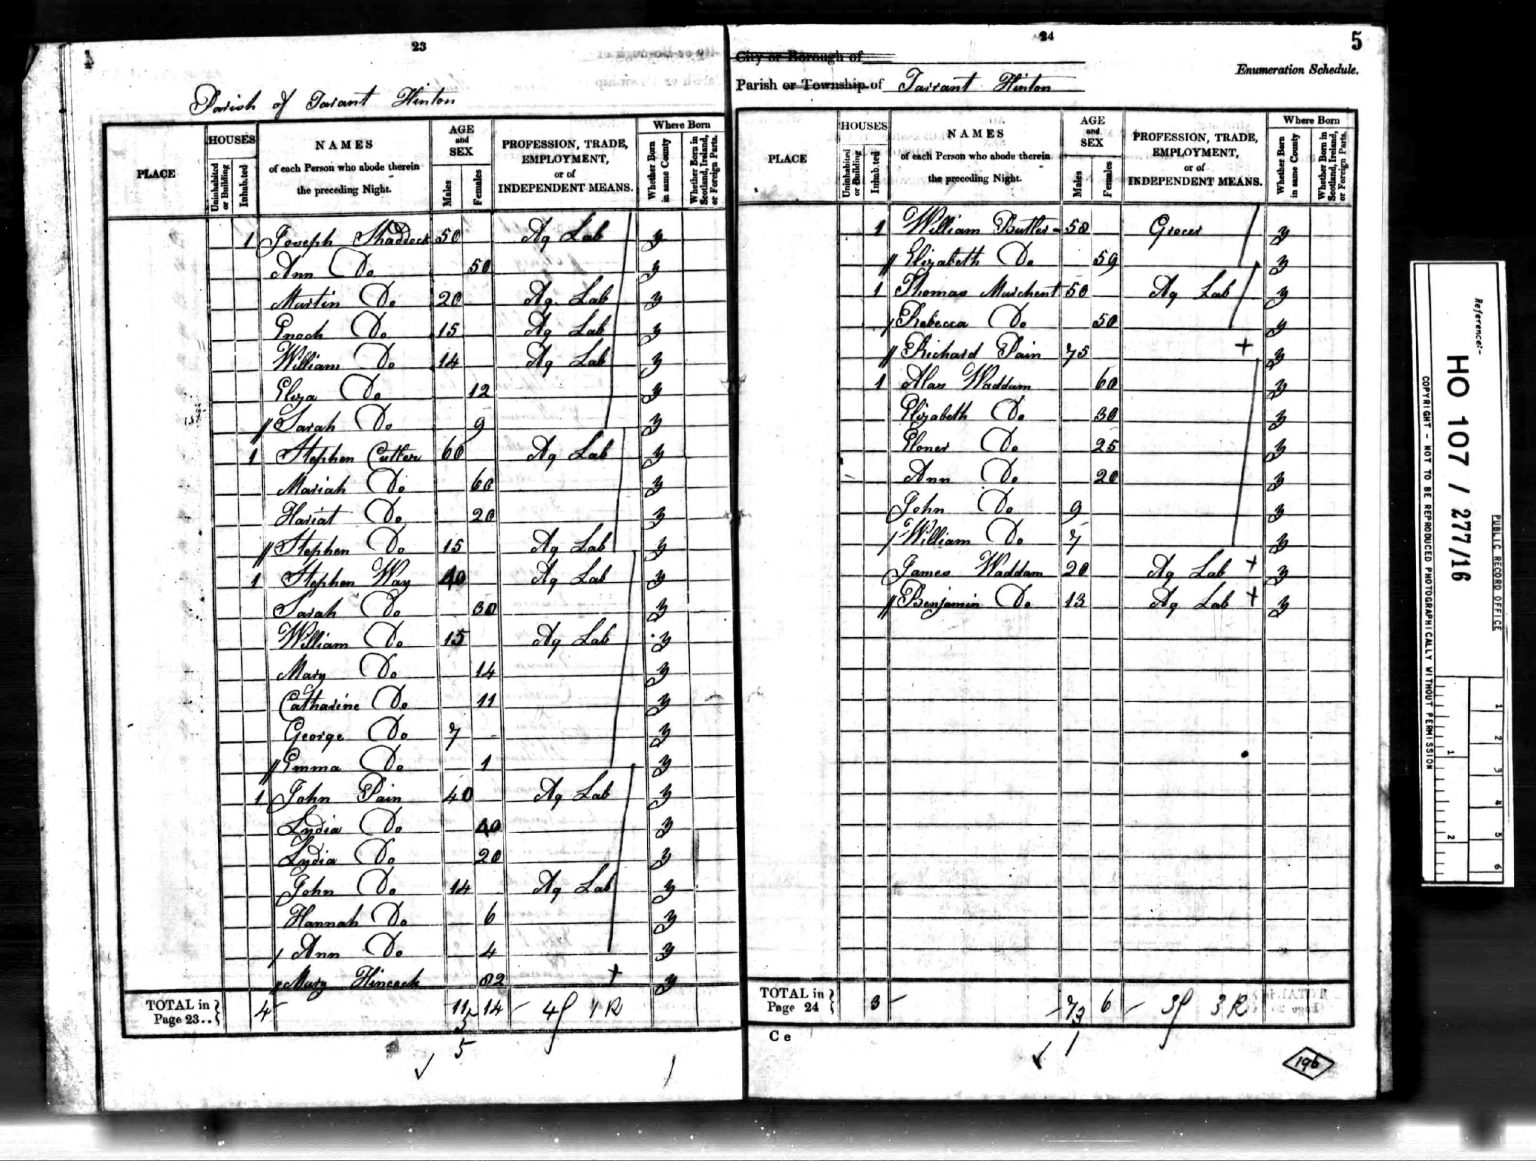 23
Parish of Tarant Hinton
PLACE
HOUSES
Uninhabited or Building
Inhabited
NAMES
of each Person who abode therein
the preceding Night.
AGE
and
SEX
Males
Females
PROFESSION, TRADE,
EMPLOYMENT,
or of
INDEPENDENT MEANS.
Where Born
Whether Born in same County
Whether Born in Scotland, Ireland, or Foreign Parts.
1 Joseph Shaddock 50 Ag Lab y
Ann Do 50 y
Martin Do 20 Ag Lab y
Enoch Do 15 Ag Lab y
William Do 14 Ag Lab y
Eliza Do 12 y
// Sarah Do 9 y
1 Stephen Cutler 60 Ag Lab y
Mariah Do 60 y
Hariat Do 20 y
// Stephen Do 15 Ag Lab y
1 Stephen Way 40 Ag Lab y
Sarah Do 30 y
William Do 15 Ag Lab y
Mary Do 14 y
Catharine Do 11 y
George Do 7 y
// Emma Do 1 y
1 John Pain 40 Ag Lab y
Lydia Do 40 y
Lydia Do 20 y
John Do 14 Ag Lab y
Hannah Do 6 y
/ Ann Do 4 y
// Mary Hincock 82 + y
TOTAL in
Page 23..} 4 11 14
5
5
24
5
City or Borough of
Enumeration Schedule.
Parish or Township of Tarrant Hinton
PLACE
HOUSES
Uninhabited or Building
Inhabited
NAMES
of each Person who abode therein
the preceding Night.
AGE
and
SEX
Males
Females
PROFESSION, TRADE,
EMPLOYMENT,
or of
INDEPENDENT MEANS.
Where Born
Whether Born in same County
Whether Born in Scotland, Ireland, or Foreign Parts.
1 William Butler 50 Grocer y
// Elizabeth Do 59 y
1 Thomas Marchent 50 Ag Lab y
/ Rebecca Do 50 y
// Richard Pain 75 + y
1 Waddam 60 y
Elizabeth Do 30 y
Eloner Do 25 y
Ann Do 20 y
John Do 9 y
/ William Do 7 y
James Waddam 20 Ag Lab + y
// Benjamin Do 13 Ag Lab + y
TOTAL in
Page 24 } 3 7 6
C e
196
Reference:-
HO 107 / 277/16
PUBLIC RECORD OFFICE
COPYRIGHT - NOT TO BE REPRODUCED PHOTOGRAPHICALLY WITHOUT PERMISSION
1
2
1
2
3
4
5
6